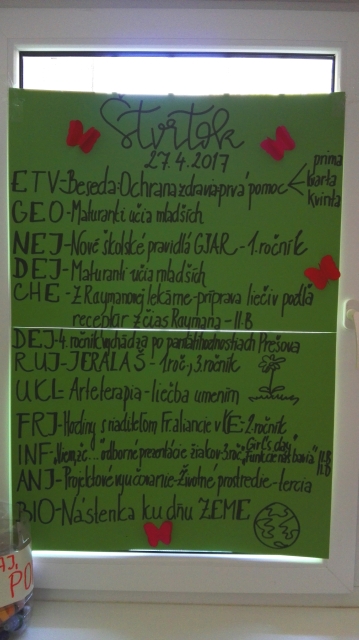 Štvrtok
27.4.2017
ETV-Beseda-Ochrana zdravia-prvá pomoc
prima
kvarta
kvinta
GEO-Maturanti učia mladších
NEJ-Nové školské pravidlá GJAR - 1. ročník
DEJ-Maturanti učia mladších
CHE-Z Raymanovej lekárne-príprava liečiv podľa
receptár z čias Raymana - II.B
DEJ-4. ročník vychádza po pamätihodnostiach Prešova
RUJ-JERALAŠ - 1.roč., 3.ročník
UKL-Arteterapia-liečba umením
FRJ-Hodiny s riaditeľom Fr. aliancie v KE-2.ročník
INF- odborné prezentácie žiakov-3.roč. "Girl's day"
"Funkcie nás bavia" II.B
II.B
ANJ-Projektové vyučovanie-Životné prostredie-tercia
BIO-Nástenka ku dňu ZEME
PO